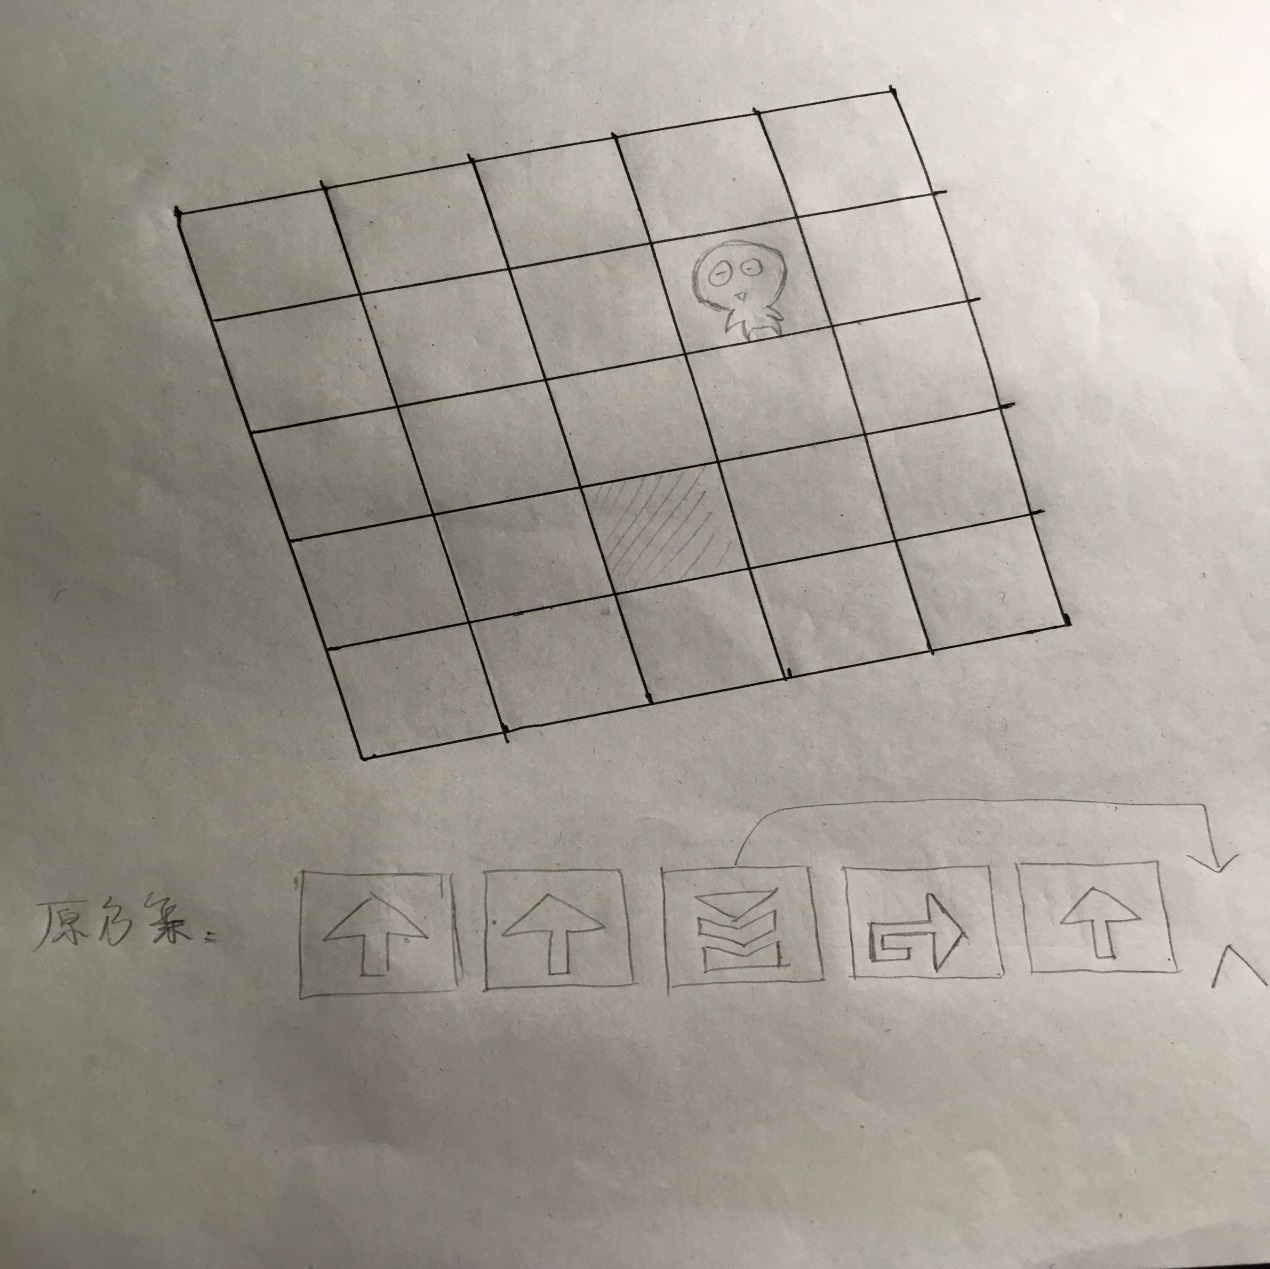 原方案: